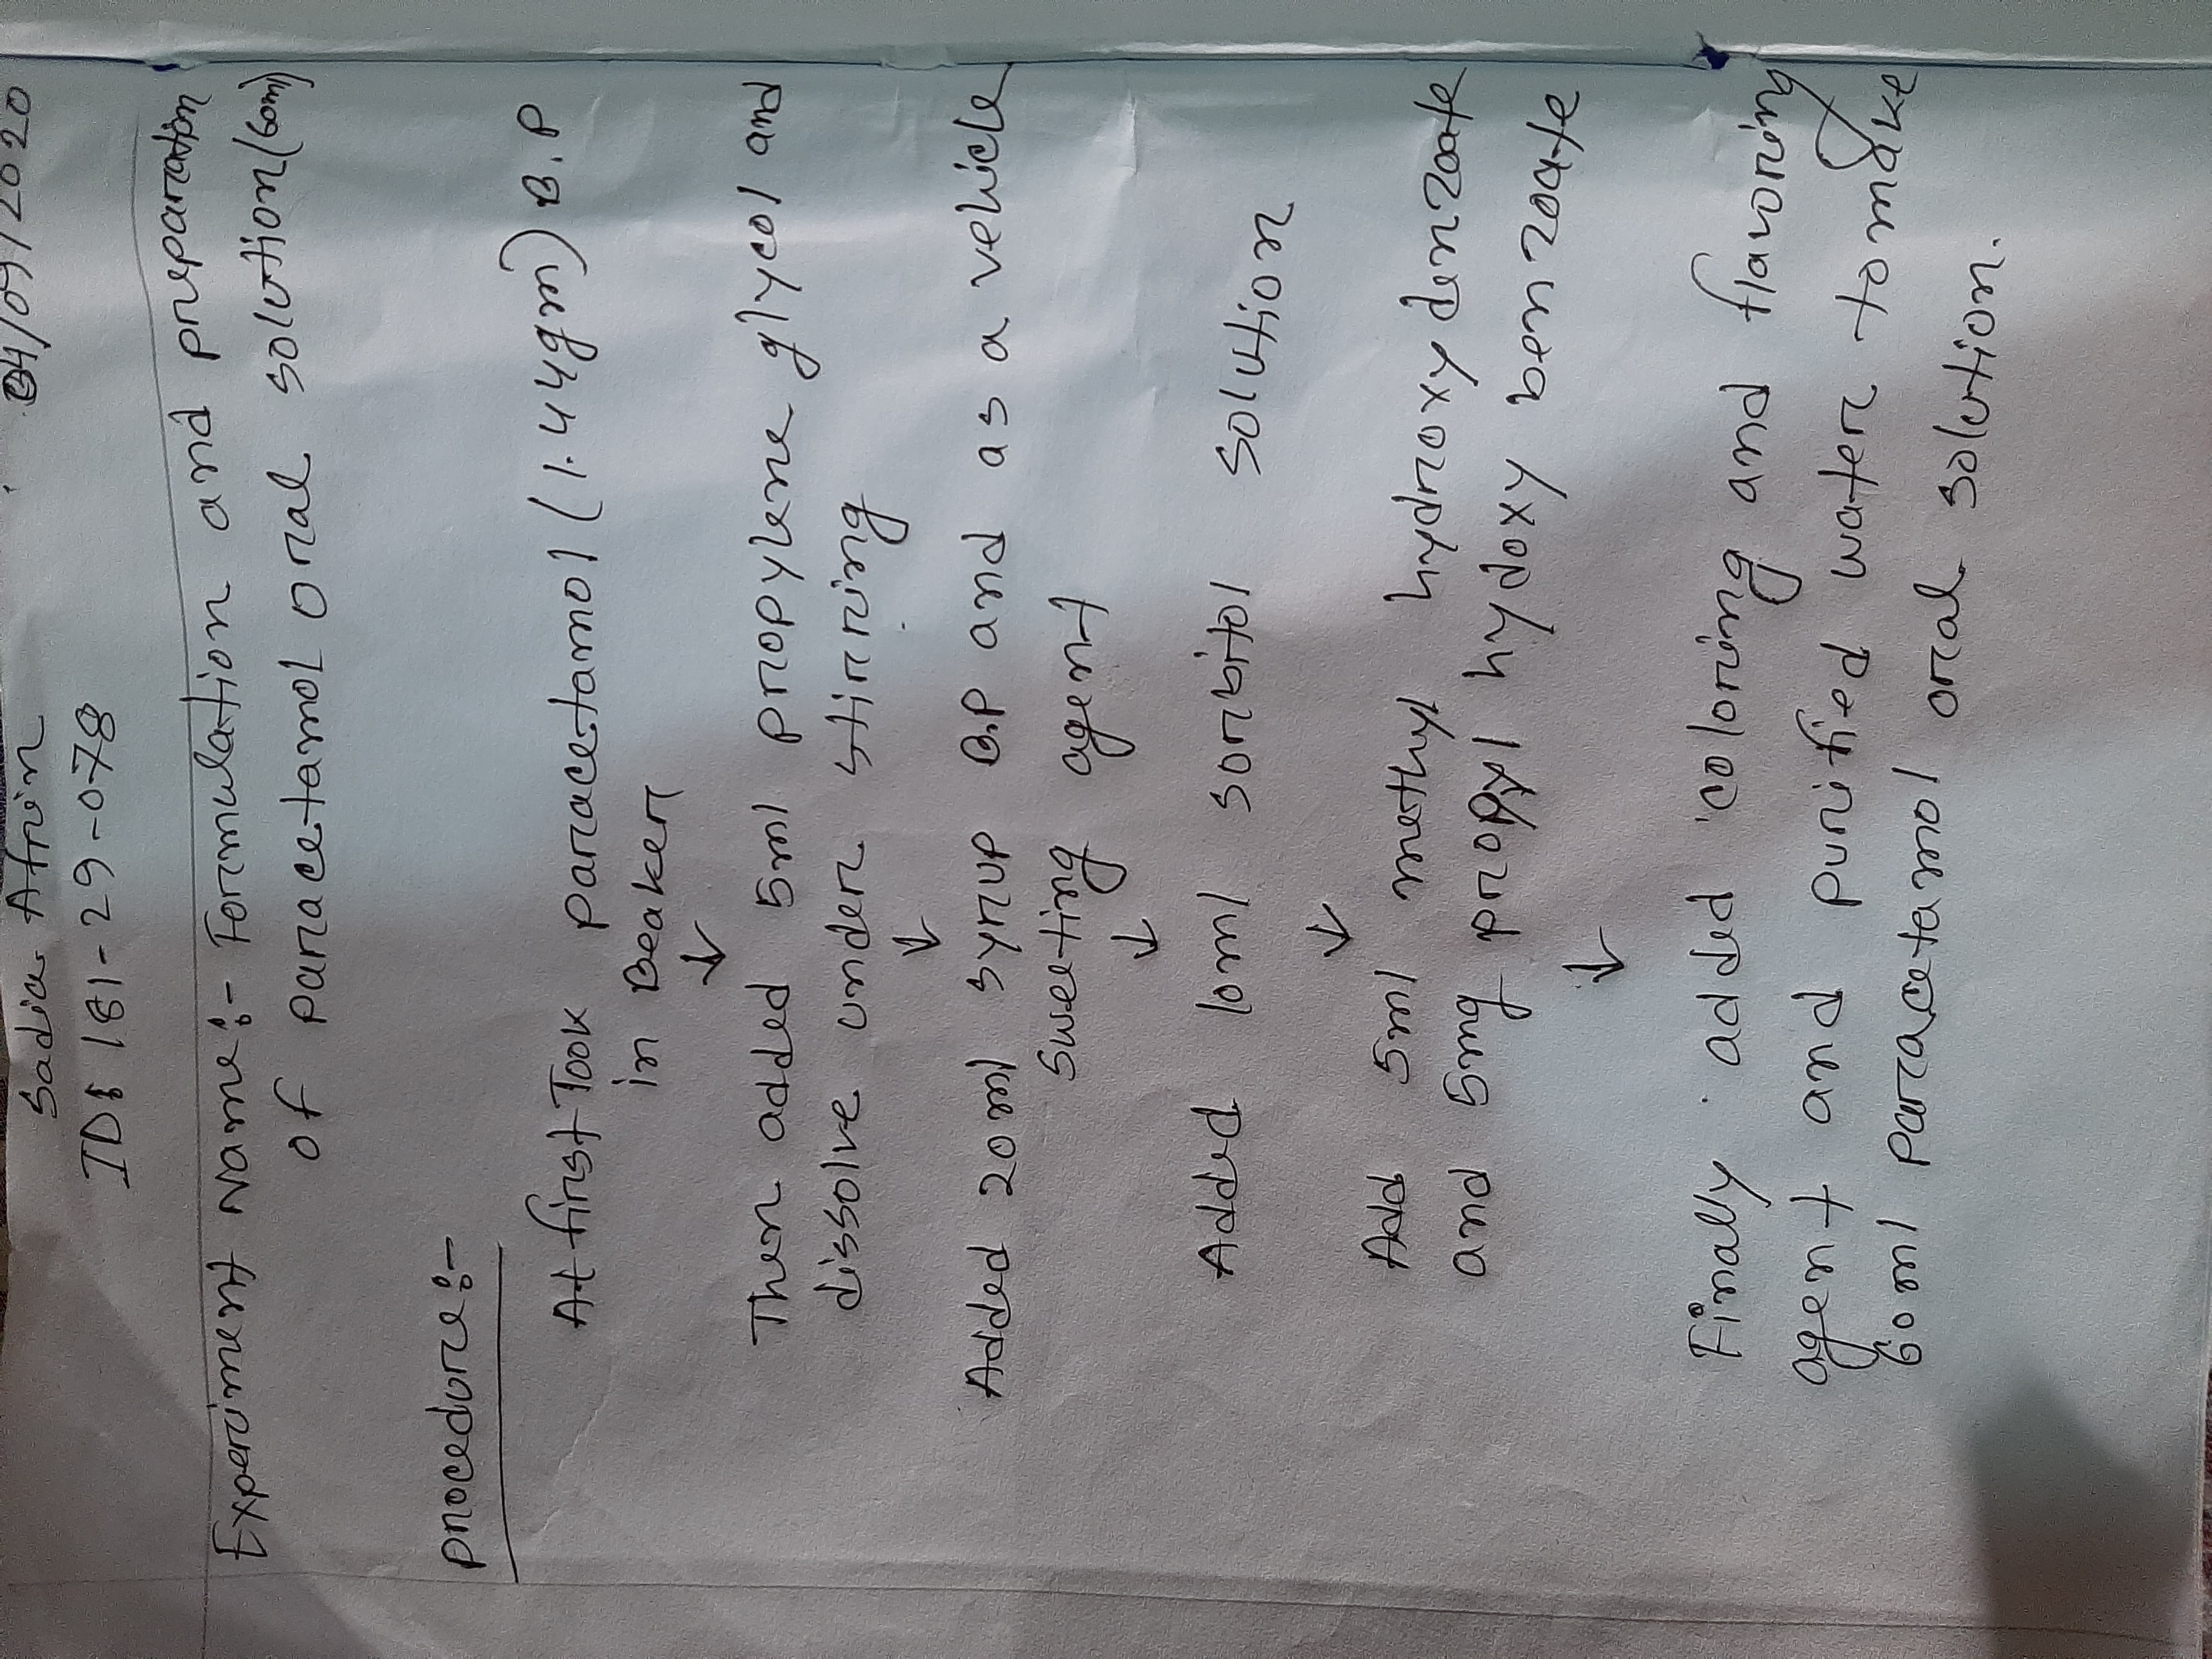 Sadia Afrin
04/09/2020
ID: 181-29-078
Experiment Name:- Formulation and preparation
of paracetamol oral solution (60ml)
procedure:-
At first Took paracetamol (1.44gm) B.P
in Beaker
↓
Then added 5ml propylene glycol and
dissolve under stirring
↓
Added 20ml syrup B.P and as a vehicle
sweeting agent
↓
Added 10ml sorbitol solution
↓
Add 5ml methyl hydroxy denzoate
and 5mg propyl hydoxy benzoate
↓
Finally added coloring and flavoring
agent and purified water to make
60ml paracetamol oral solution.